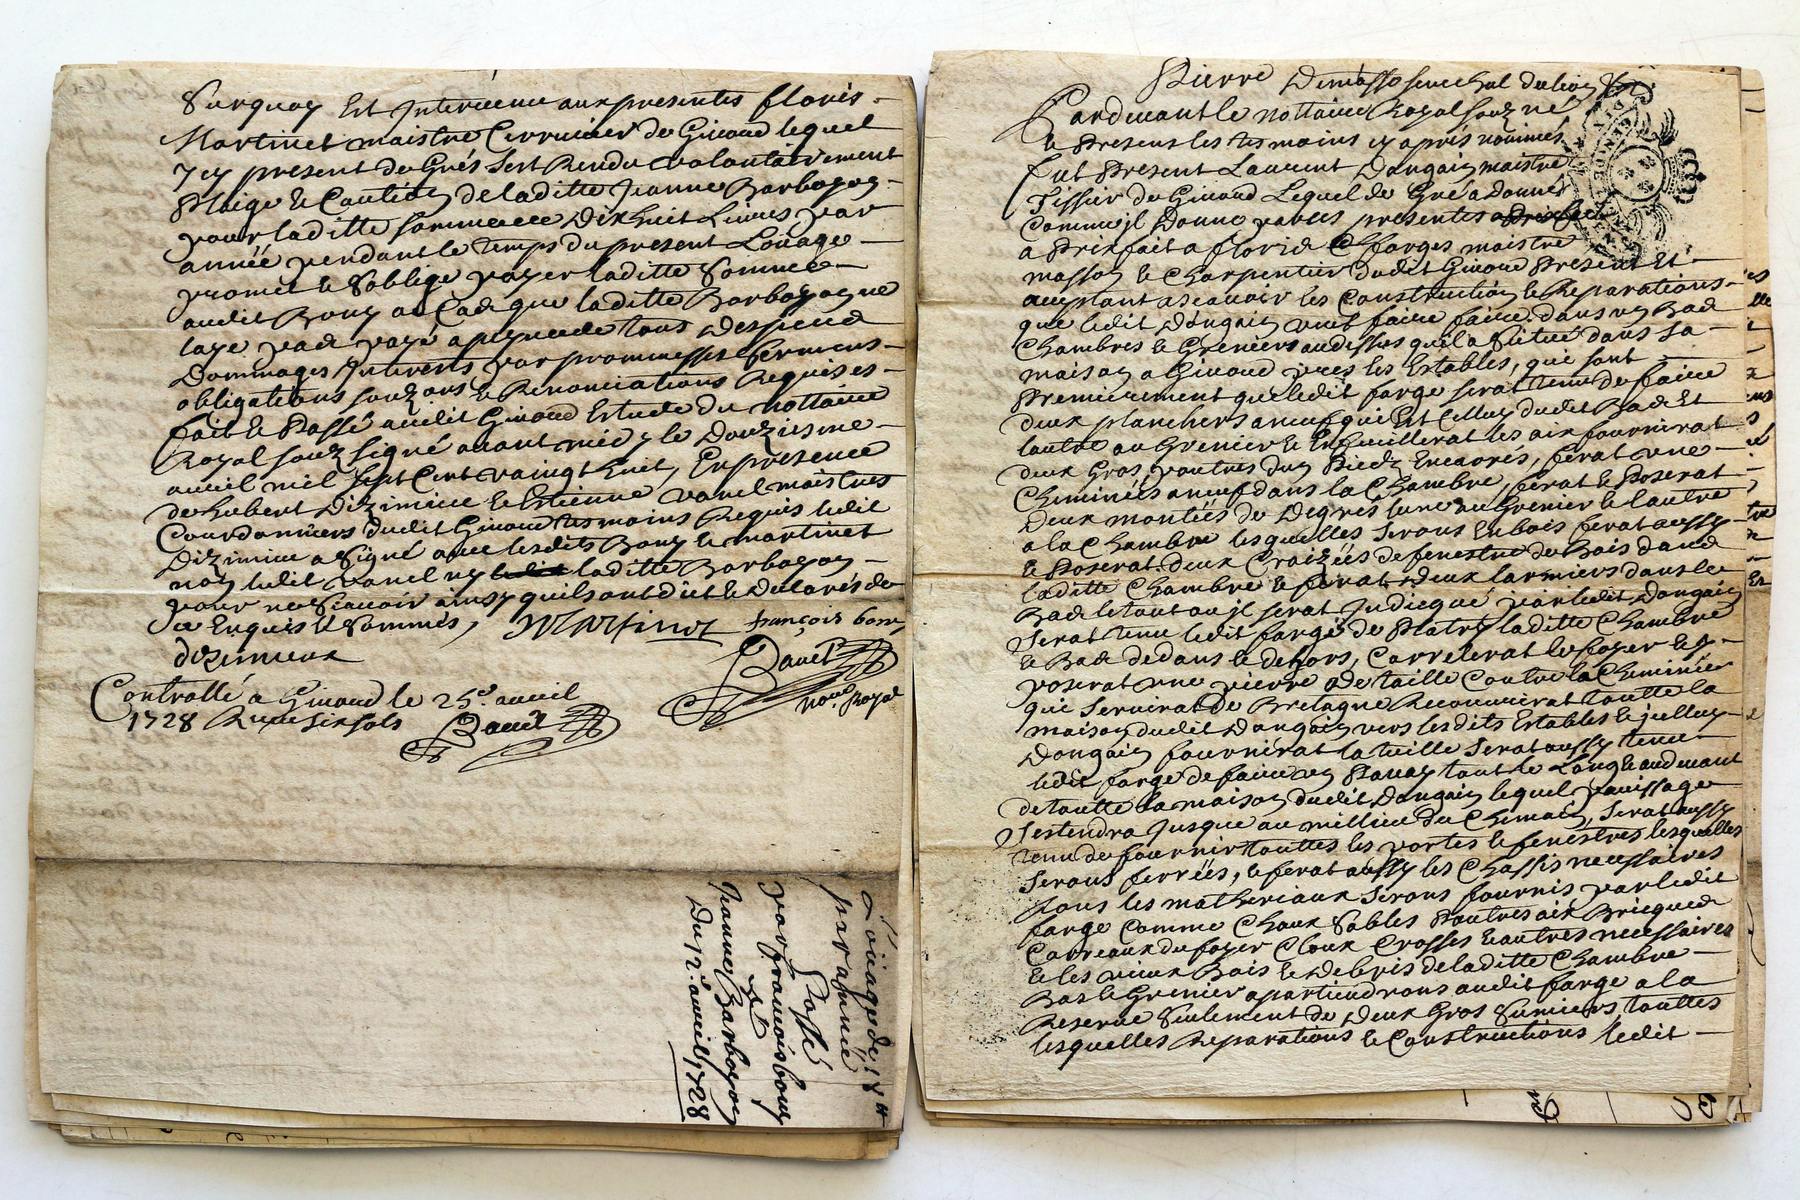 Surquoy Est Intervenu aux presentes floris
Martinet maistre Cerrurier de Givoud lequel
Icy present de Grés Sest Rendu volontairement
Pleige & Caution de laditte Jeanne Barbojon
pour laditte somme de Dixhuit Livres par
année pendant le temps du present Loüage
promet & Soblige payer laditte Somme
audit Bony au Cas que laditte Barbojon ne
laye pas payé a peyne de tous Despend
Dommages Interests par prommesses sermens
obligations & Renonciations Requises
fait & Passé audit Givoud Estude du nottaire
Royal souz signé avant midy le Douziesme
avril mil sept Cent vaingt huit, En presence
de hubert Dizimieu & Estienne vanel maistres
Courdonniers dudit Givoud tesmoins Requis ledit
Dizimieu a Signé avec lesdits Bony & martinet
non ledit vanel ny laditte Barbojon
pour ne Scavoir ainsy quils ont dit & Declaré de
Ce Enquis & Sommés, Martinet françois bony
dizimieux
Bauet
no.re Royal
Controllé a Givoud le 25.e avril
1728 Reçu six sols Bauet
Loüage de 18 ll
par année
Passé
par françois bony
a
Jeanne Barbojon
Du 12. avril 1728
Pierre
Pardevant le nottaire Royal souz né
& Presens les tesmoins cy aprés nommés
fut Present Laurent Dongain maistre
Tissier de Givoud Lequel de Gré a donné
Comme il Donne par ces presentes
a Prixfait a floris farges maistre
masson & Charpentier dudit Givoud Present Et
aceptant ascavoir les Construction & Reparations
que ledit Dongain veut faire faire dans un Bas
Chambres & Greniers audessus quil a situé dans sa
maison a Givoud vers les Estables, qui sont
Premierement que ledit farge serat tenu de faire
deux planchers a neuf qui Est Celluy dudit Bas Et
lautre au Grenier & Enfeuillerat les aix fournirat
deux Gros poutres dun Piedz Encarés, ferat une
Cheminées a neuf dans la Chambre, ferat & Poserat
Deux montées de Degrés lune au Grenier & lautre
a la Chambre lesquelles Serons En bois ferat aussy
& Poserat deux Croizées de fenestre de Bois dans
laditte Chambre & ferat Deux larmiers dans le
Bas le tout ou il serat Judicqué par ledit Dongain
Serat tenu ledit farge de Platry laditte Chambre
& Bas dedans & dehors, Carrelerat le foyer & y
poserat une pierre De taille Contre la Cheminée
qui Servirat de Bretagne Recouvrirat toutte la
maison dudit Dongain vers lesdits Estables & jcelluy
Dongain fournirat la tuille Serat aussy tenu
ledit farge de faire un Pavay tout le Long & audevant
de toutte la maison dudit Dongain lequel pavissage
Sestendra Jusque au millieu du Chemain, Serat aussy
tenu de fournir touttes les portes & fenestres lesquelles
Serons ferrées, & ferat aussy les Chassis necessaires
tous les matheriaux Serons fournis par ledit
farge Comme Chaux Sables Poutres aix Bricques
Carreaux du foyer Cloux Crosses & autres necessaires
& les vieux Bois & Debris de laditte Chambre
Bas & Grenier apartiendrons audit farge a la
Reserve Seulement de Deux Gros Sumiers, touttes
lesquelles Reparations & Constructions ledit